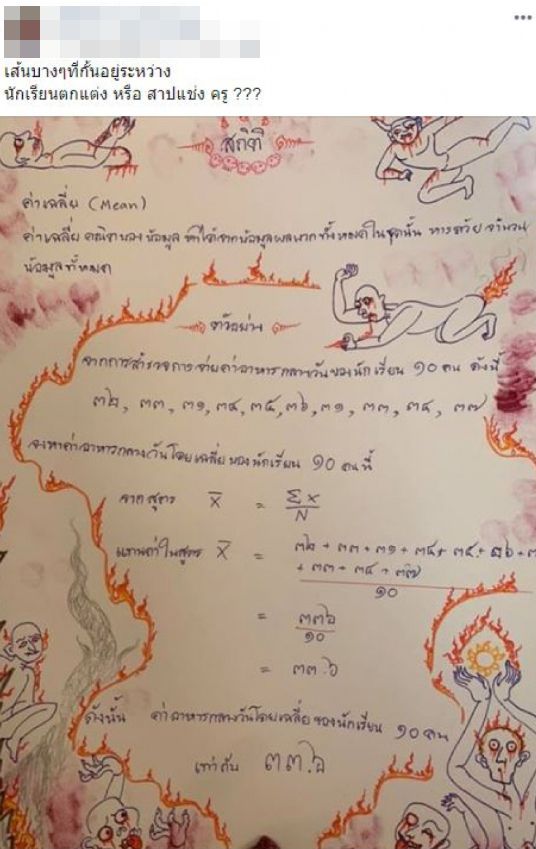 เส้นบางๆที่กั้นอยู่ระหว่าง
นักเรียนตกแต่ง หรือ สาปแช่ง ครู ???
สถิติ
ค่าเฉลี่ย (Mean)
ค่าเฉลี่ย คณิตของข้อมูล หาได้จากข้อมูลผลบวกทั้งหมดในชุดนั้น หารด้วย จำนวน
ข้อมูลทั้งหมด
ตัวอย่าง
จากการสำรวจการจ่ายค่าอาหารกลางวันของนักเรียน ๑๐ คน ดังนี้
๓๒, ๓๓, ๓๑, ๓๔, ๓๕, ๓๖, ๓๑, ๓๓, ๓๔, ๓๗
จงหาค่าอาหารกลางวันโดยเฉลี่ยของนักเรียน ๑๐ คนนี้
จากสูตร x̄ = Σx
N
แทนค่าในสูตร x̄ = ๓๒ + ๓๓ + ๓๑ + ๓๔ + ๓๕ + ๓๖ + ๓
+ ๓๓ + ๓๔ + ๓๗
๑๐
= ๓๓๖
๑๐
= ๓๓.๖
ดังนั้น ค่าอาหารกลางวันโดยเฉลี่ยของนักเรียน ๑๐ คน
เท่ากับ ๓๓.๖